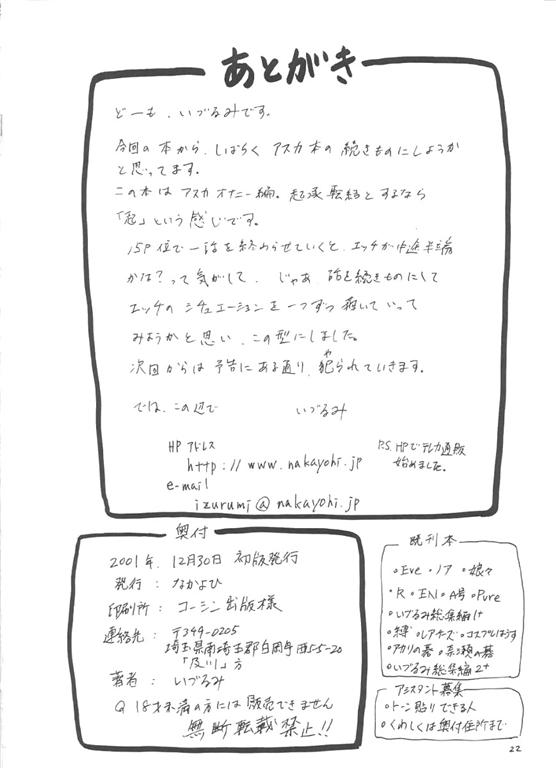 あとがき
どーも、いづるみです。
今回の本から、しばらくアスカ本の続きものにしようか
と思ってます。
この本はアスカオナニー編。起承転結とするなら
「起」という感じです。
15P位で一話を終わらせていくと、エッチが中途半端
かな?って気がして、じゃあ、話を続きものにして
エッチのシチュエーションを一つずつ描いていって
みようかと思い、この型にしました。
次回からは予告にある通り、犯られていきます。
では、この辺で いづるみ
HPアドレス
http://www.nakayohi.jp
e-mail
izurumi@nakayohi.jp
P.S. HPでテレカ通販
始めました。
奥付
2001年、12月30日 初版発行
発行:なかよひ
印刷所:コーシン出版様
連絡先:〒349-0205
埼玉県南埼玉郡白岡町西5-5-20
「及川」方
著者:いづるみ
18才未満の方には販売できません
無断転載禁止!!
既刊本
○Eve ○ノア ○娘々
○R ○EN ○A号 ○Pure
○いづるみ総集編1+
○縛 ○レアナーズ ○コスプレはうす
○アカリの番
○いづるみ総集編2+
アシスタント募集
○トーン貼りできる人
○くわしくは奥付住所まで
22